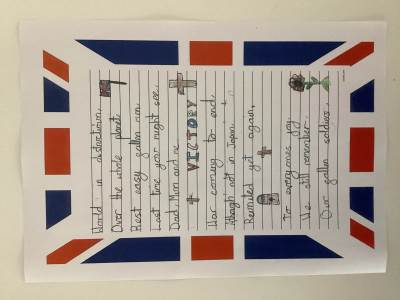 World in distruction,
Over the whole planet.
Rest easy gallon men
Last time you might see
Dad, Mum and me
VICTORY
War coming to end,
Although not in Japan,
Reunited yet again,
To everyones joy
We still remember
Our gallon soldiers.